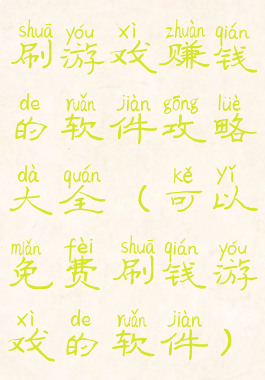 shuā yóu xì zhuàn qián
刷游戏赚钱
de ruǎn jiàn gōng lüè
的软件攻略
dà quán kě yǐ
大全（可以
miǎn fèi shuā qián yóu
免费刷钱游
xì de ruǎn jiàn
戏的软件）